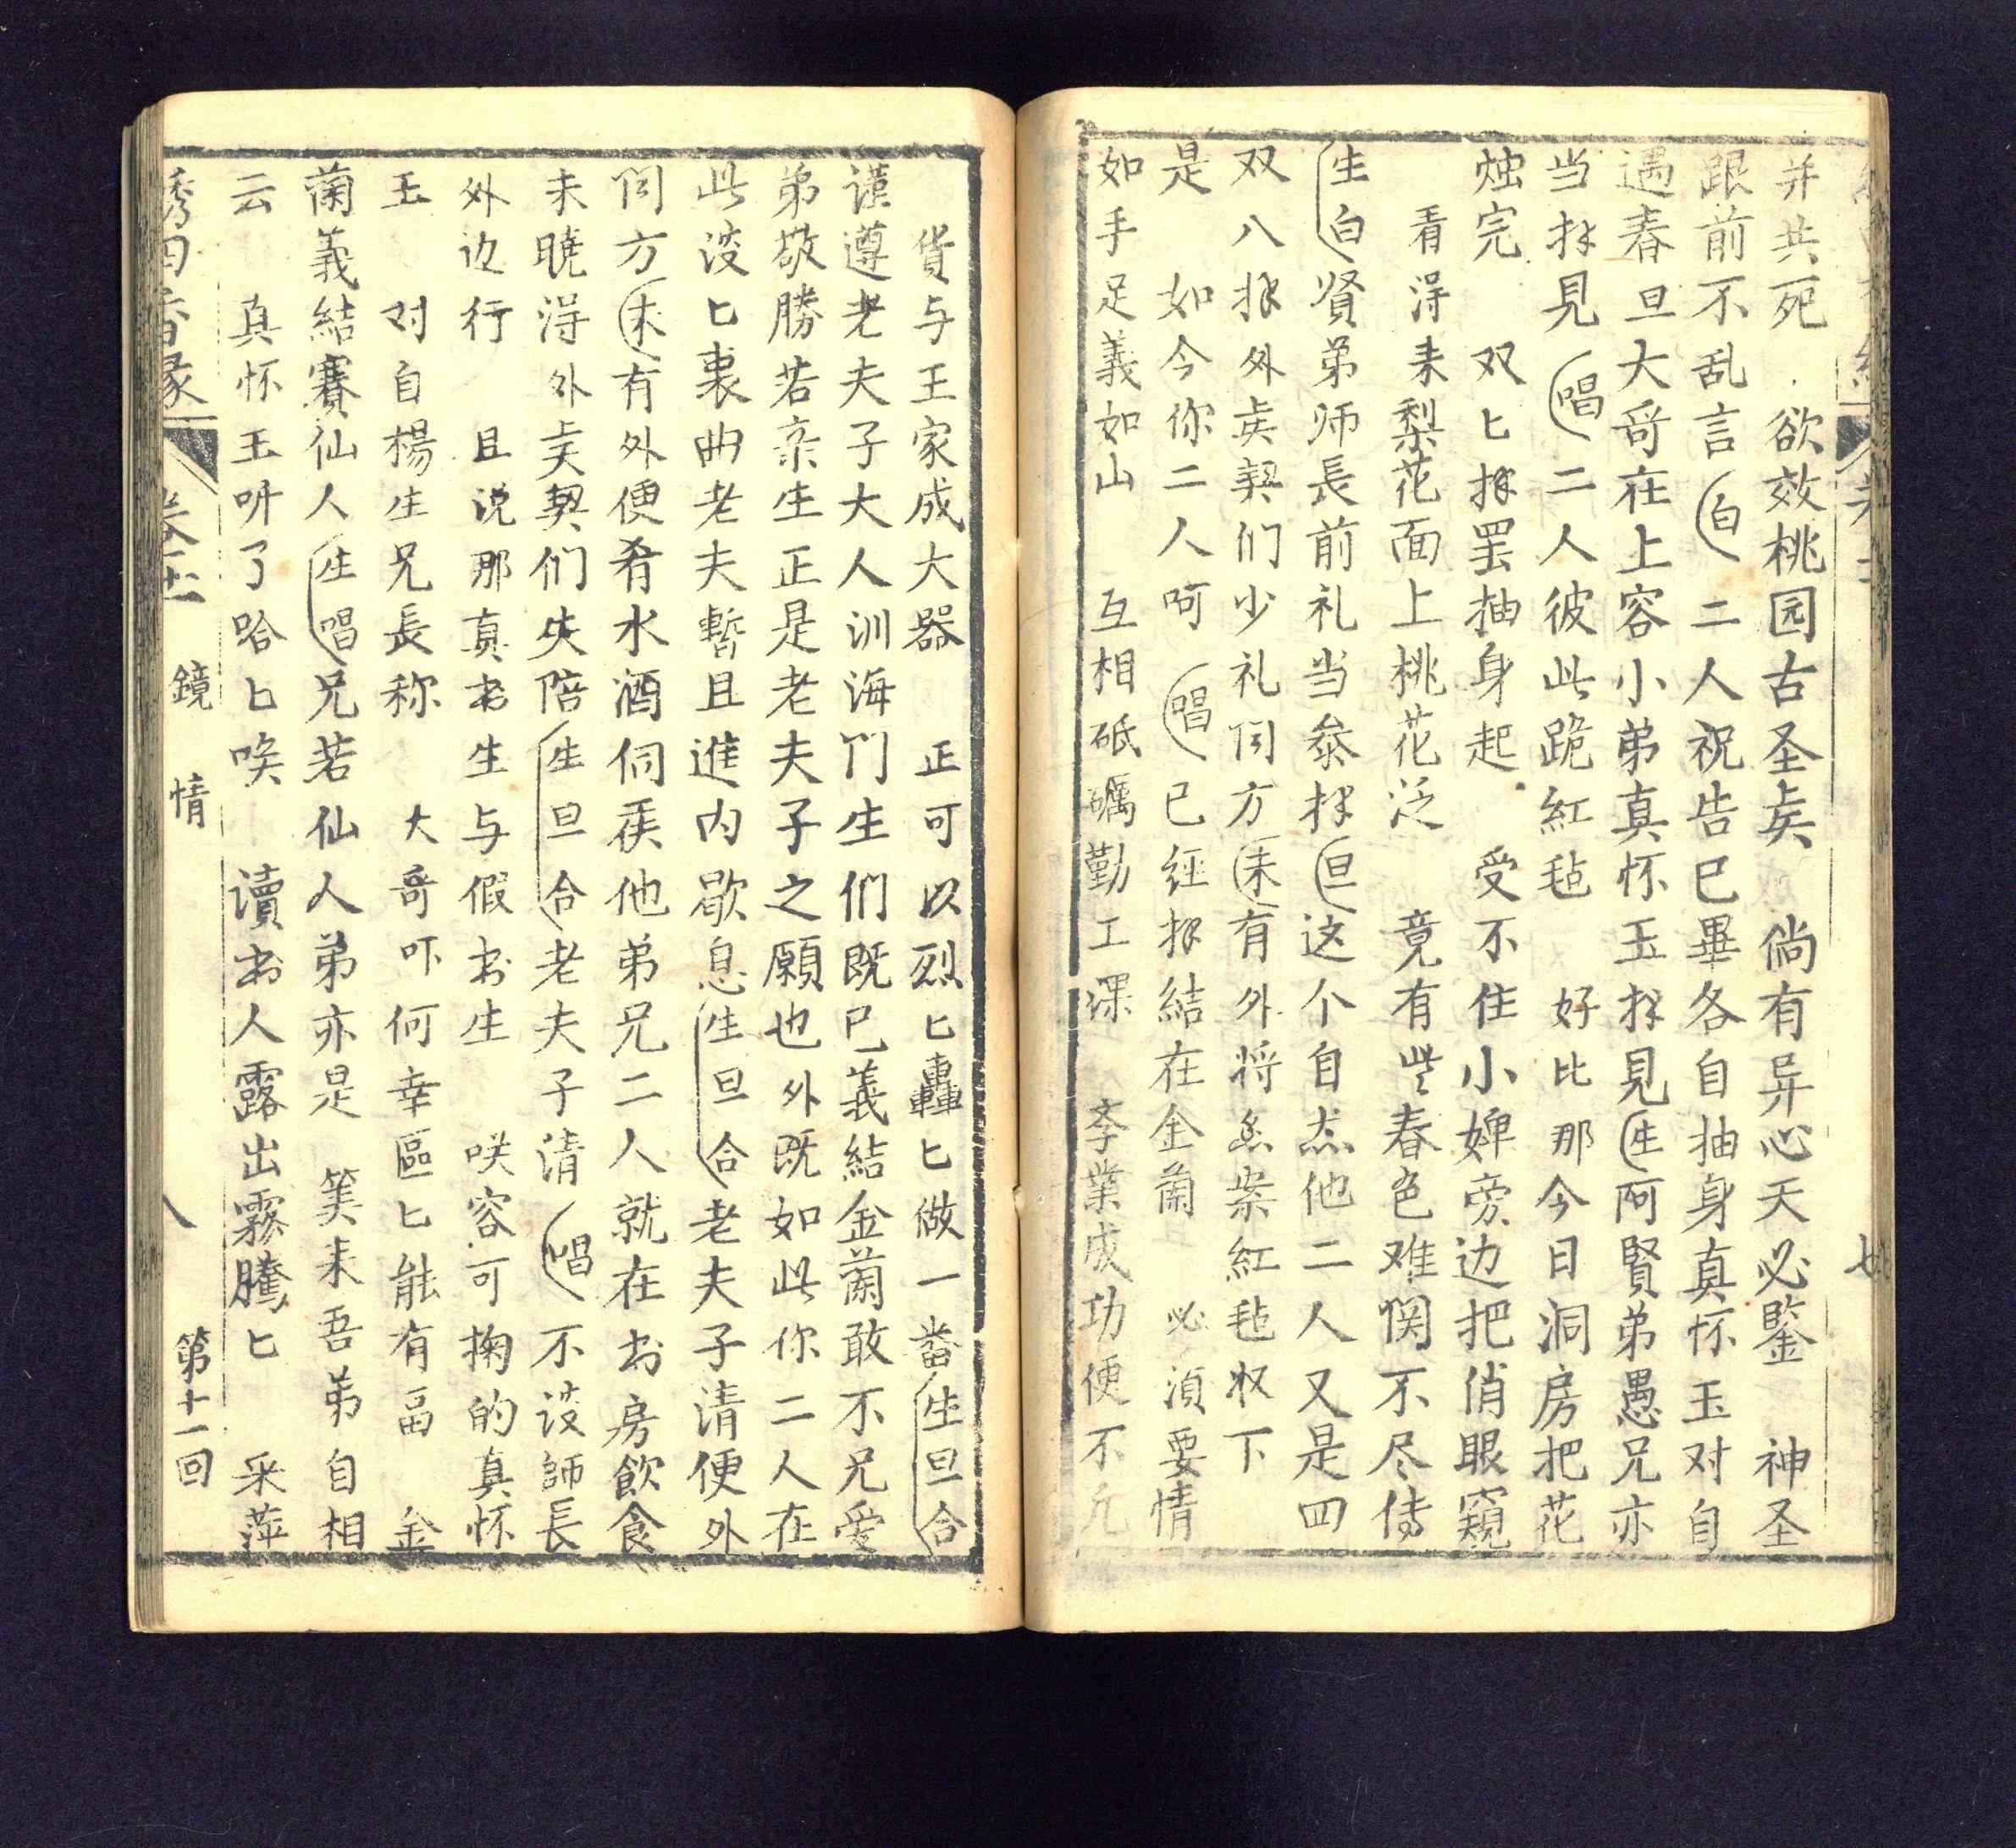 七
并共死　欲效桃园古圣矣　倘有异心天必鉴　神圣
跟前不乱言(白)二人祝告巳畢各自抽身真怀玉对自
遇春旦大哥在上容小弟真怀玉拜見(生)阿賢弟愚兄亦
当拜見(唱)二人彼此跪紅毡　好比那今日洞房把花
烛完　双匕拜罢抽身起　受不住小婢旁边把俏眼窺
看淂来梨花面上桃花泛　竟有些春色难関不尽傳
(生白)贤弟师長前礼当叅拜(旦)这个自杰他二人又是四
双八拜外矣契们少礼伺方(末)有外将案紅毡收下
是　如今你二人呵(唱)已經拜結在金蘭　必湏要情
如手足義如山　互相砥礪勤工课　李業成功便不凡
貨与王家成大器　正可以烈匕轟匕做一畨(生旦合)
谨遵老夫子大人训海门生们既巳義結金蘭敢不兄爱
弟敬勝若亲生正是老夫子之願也外既如此你二人在
此淡匕裹曲老夫暫且進内歇息(生旦合)老夫子清便外
伺方(末)有外便肴水酒伺疾他弟兄二人就在书房飲食
未曉淂外矣契们失陪(生旦合)老夫子清(唱)不说師長
外边行　且说那真书生与假书生　咲容可掬的真怀
玉　对自楊生兄長称　大哥吓何幸區匕能有畐　金
蘭義結賽仙人(生唱)兄若仙人弟亦是　笑来吾弟自相
云　真怀玉听了哈匕唤　讀书人露出霧騰匕　采萍
秀四香緣　卷十一　鏡　情　八　第十一回